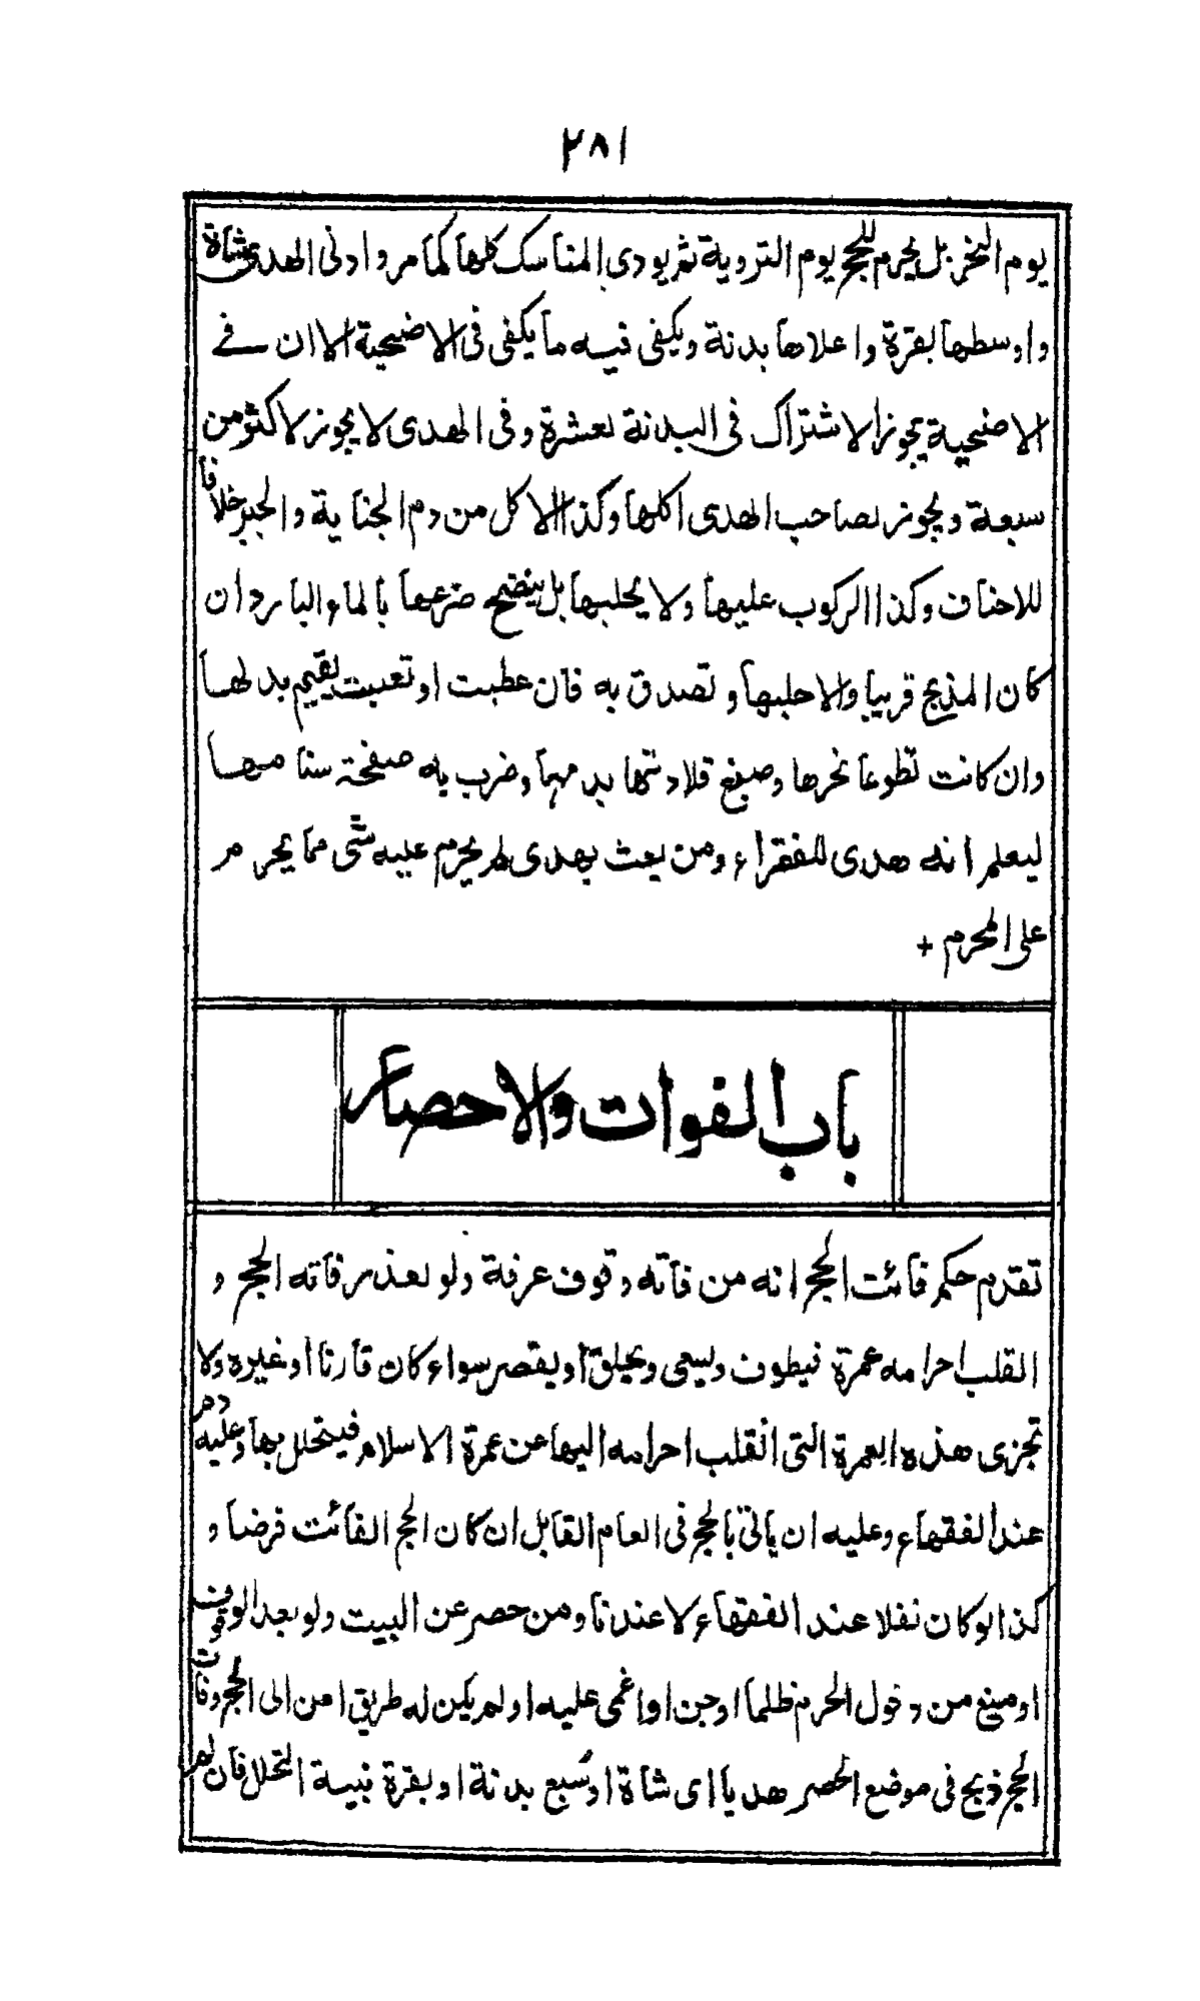 ٢٨١
يوم النحر بل يحرم للحج يوم التروية ثم يودى المناسك كلها كما مر وادنى الهدى شاة
واوسطها بقرة واعلاها بدنة ويكفى فيه ما يكفى فى الاضحية الا ان فے
الاضحية يجوز الاشتراك فى البدنة لعشرة وفى الهدى لا يجوز لاكثر من
سبعة ويجوز لصاحب الهدى اكلها وكذا الاكل من دم الجناية والجبر خلافا
للاحناف وكذا الركوب عليها ولا يحلبها بل ينضح ضرعها بالماء البارد ان
كان المذبح قريبا والا حلبها وتصدق به فان عطبت او تعيبت يقيم بدلها
وان كانت تطوعا نحرها وصبغ قلادتها بدمها وضرب به صفحة سنامها
ليعلم انه هدى للفقراء ومن بعث بهدى لم يحرم عليه شئ مما يحرم
على المحرم +
باب الفوات والاحصار
تقدم حكم فائت الحج انه من فاته وقوف عرفة ولو لعذر فاته الحج و
القلب احرامه عمرة فيطوف ويسعى ويحلق او يقصر سواء كان قارنا او غيره ولا
تجزى هذه العمرة التى انقلب احرامه اليها عن عمرة الاسلام فيتحلل بها وعليه دم
عند الفقهاء وعليه ان ياتى بالحج فى العام القابل ان كان الحج الفائت فرضا و
كذا لو كان نفلا عند الفقهاء لا عندنا ومن حصر عن البيت ولو بعد الوقوف
او منع من دخول الحرم ظلما او جن او اغمى عليه او لم يكن له طريق امن الى الحج وفات
الحج ذبح فى موضع الحصر هديا اى شاة او سُبع بدنة او بقرة بنية التحلل فان لم